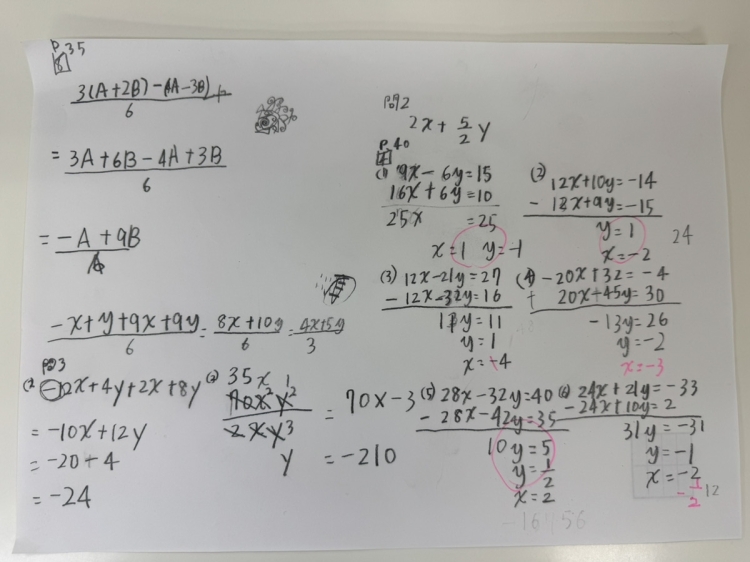 P 35
8
3(A+2B)-(4A-3B)
6
= 3A+6B-4A+3B
6
= -A+9B
6
-x+y+9x+9y = 8x+10y = 4x+5y
6 6 3
P 3
-12x+4y+2x+8y
= -10x+12y
= -20-4
= -24
(2) 35x 1
70x²y²
2xy³
y
= 70x-3
= -210
P 2
2x+5/2y
P.40
4
(1) 9x-6y=15
16x+6y=10
25x =25
x=1 y=-1
(2) 12x+10y=-14
- 12x+9y=-15
y=1
x=-2
24
(3) 12x-21y=27
- 12x-32y=16
11y=11
y=1
x=-4
(4) -20x+32=-4
+ 20x+45y=30
-13y=26
y=-2
x=-3
(5) 28x-32y=40
- 28x-42y=35
10y=5
y=1/2
x=2
-16 56
(6) 24x+21y=-33
- 24x+10y=2
31y=-31
y=-1
x=-2
-1/2
12